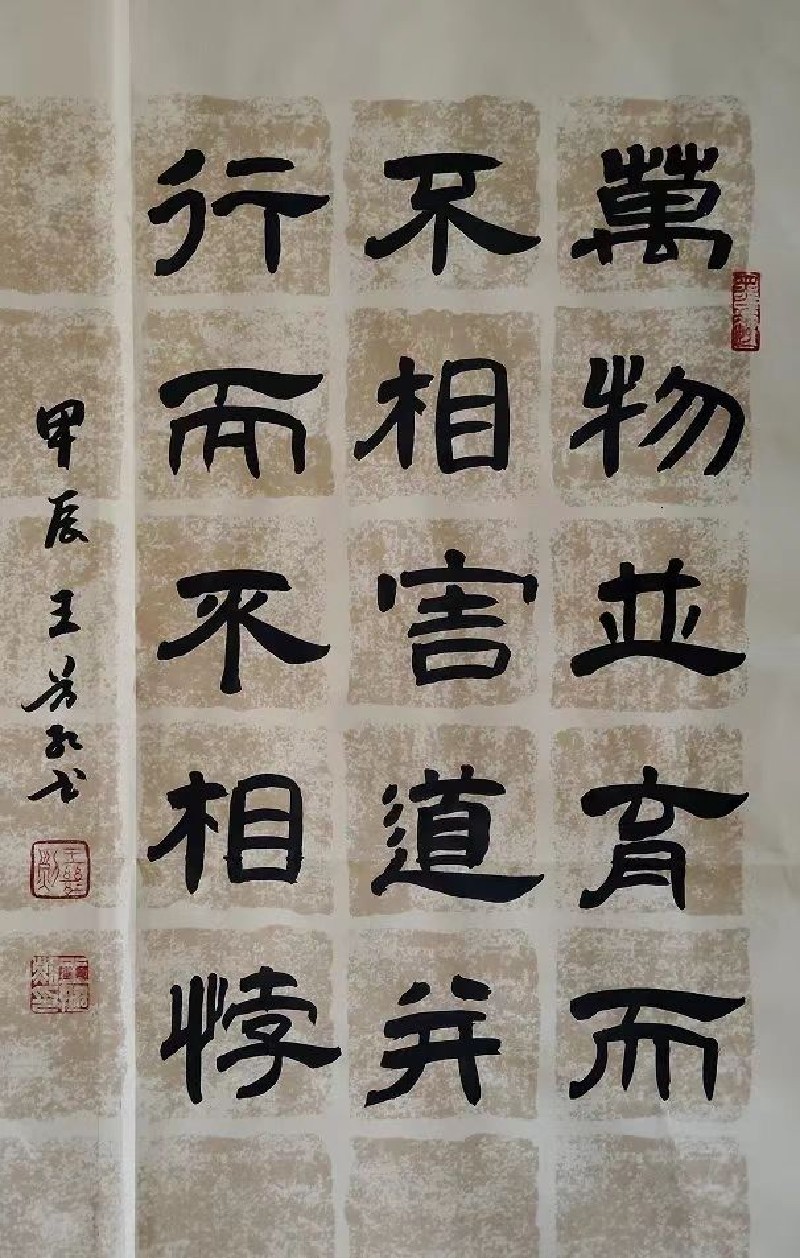 萬物並育而
不相害道并
行而不相悖
甲辰王